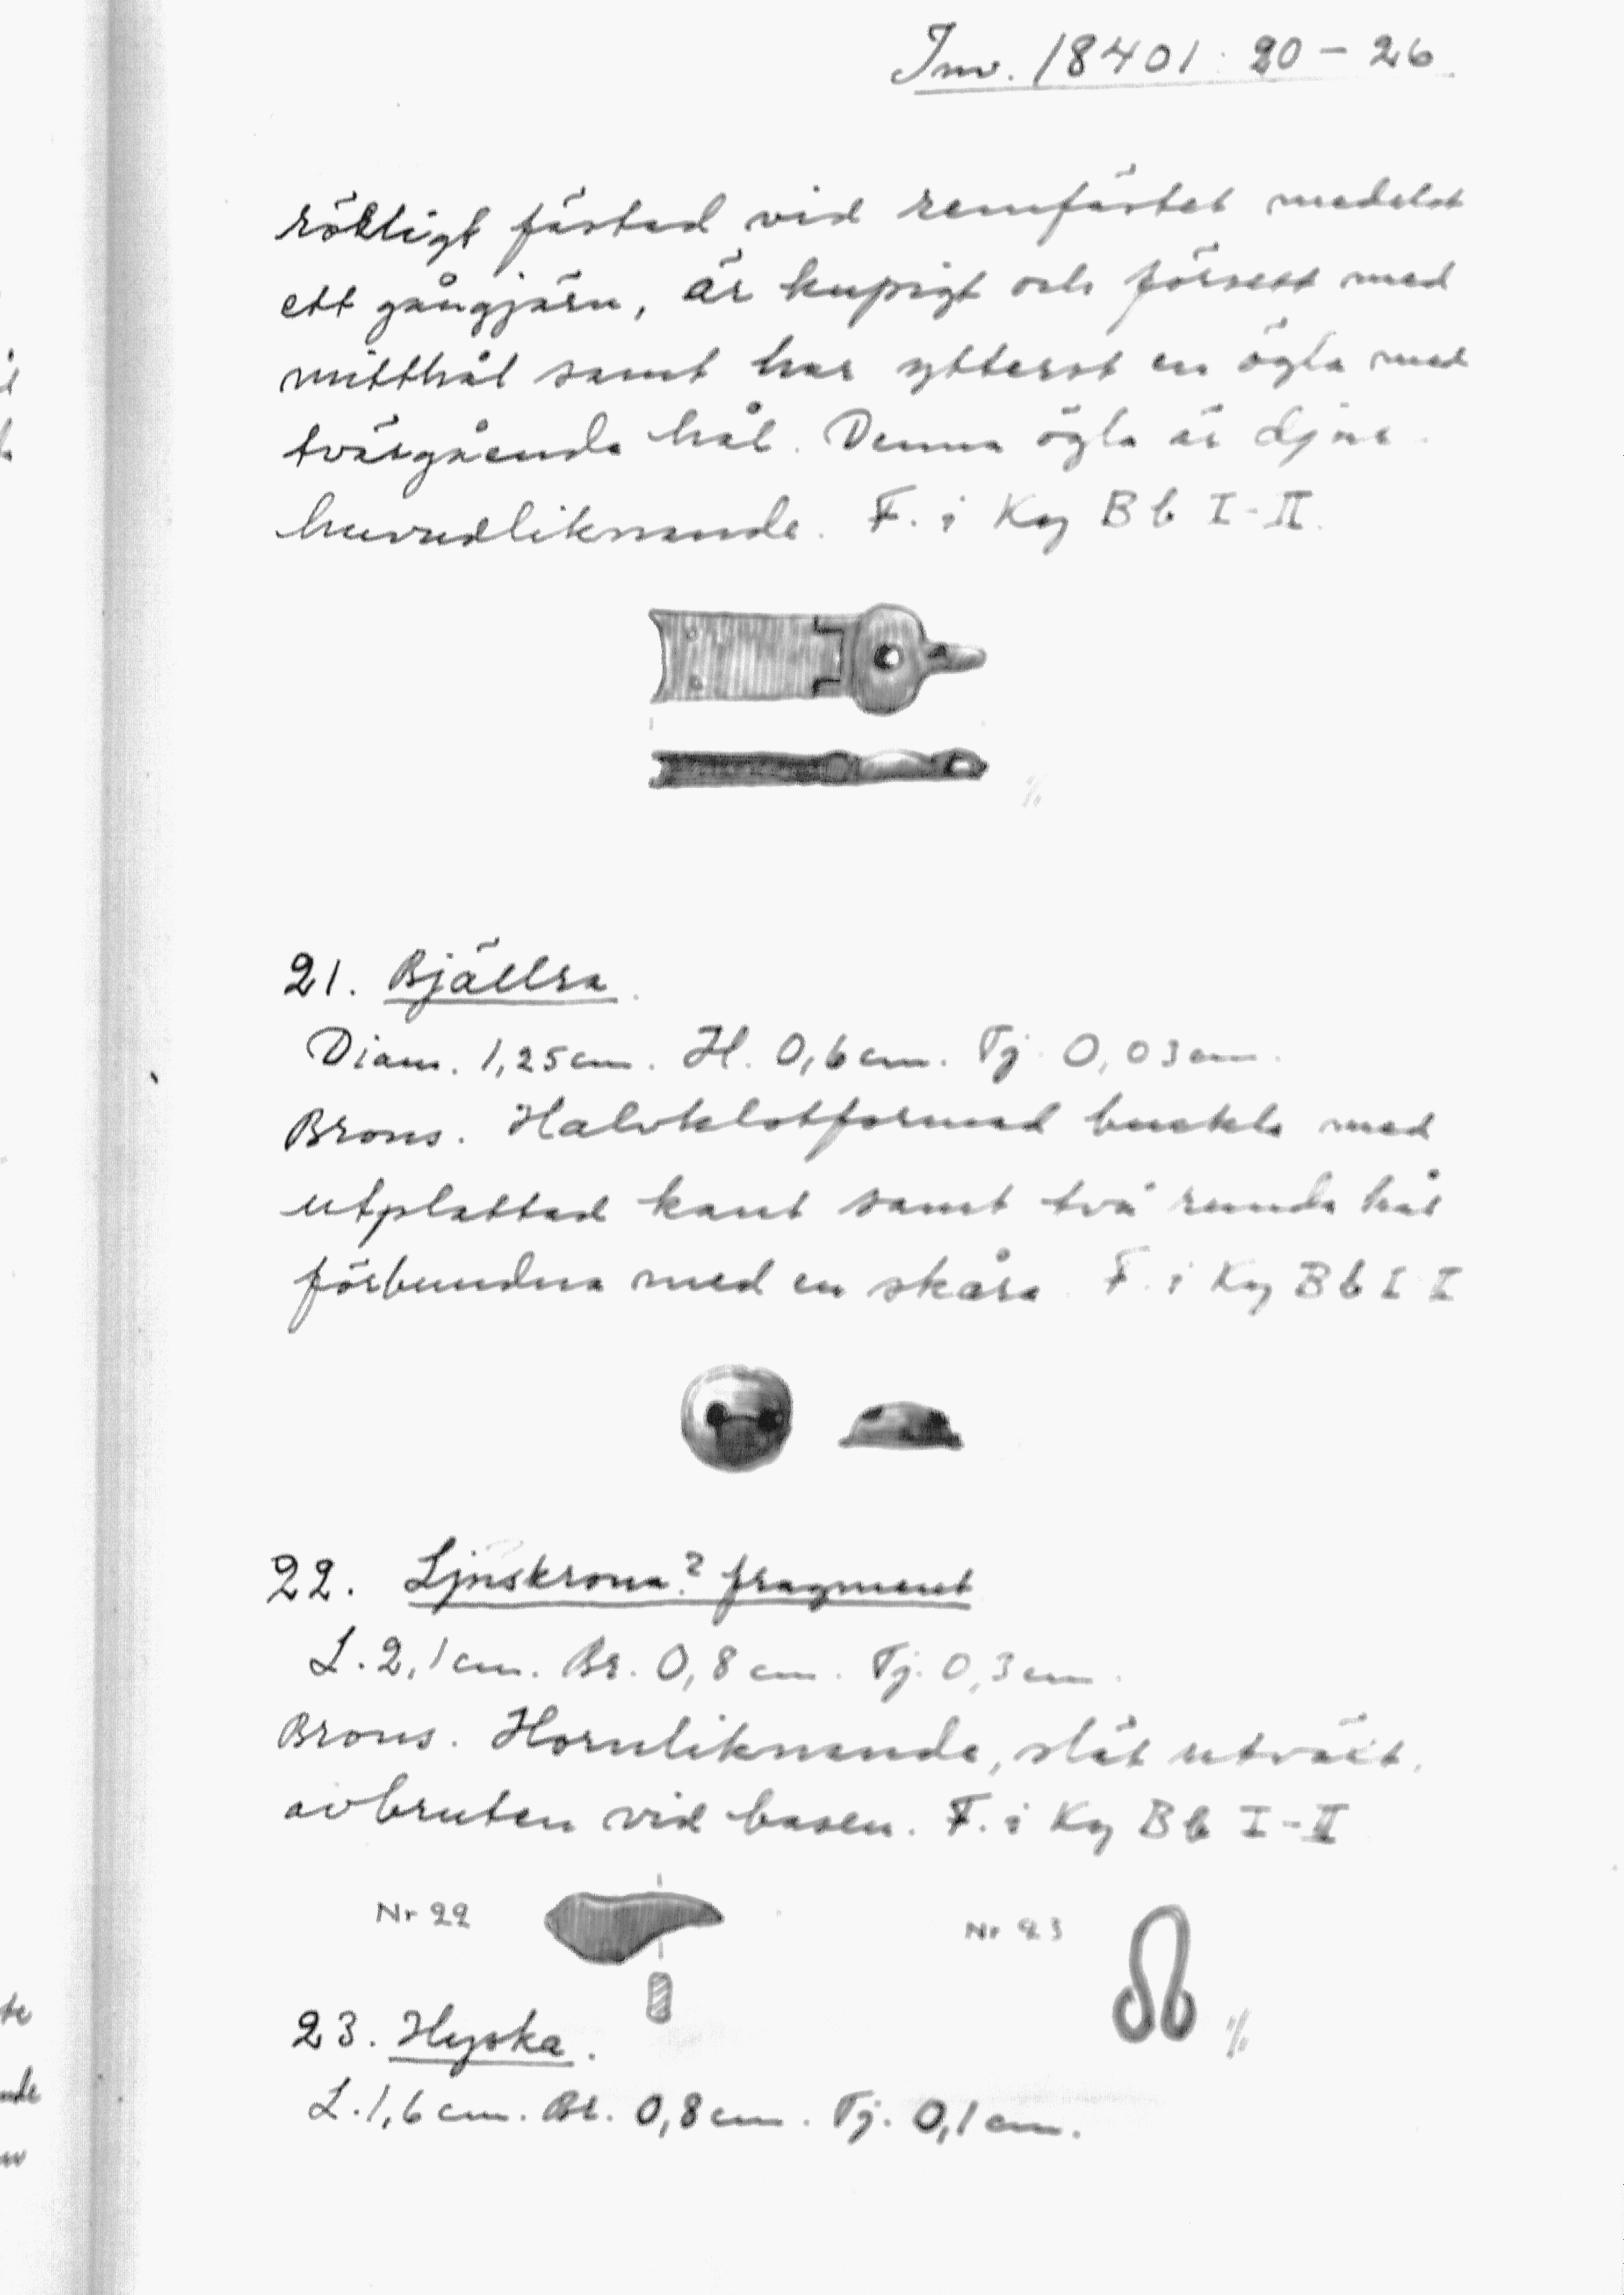 Inv. 18401: 20 - 26
rörligt fästad vid remfästet medelst
ett gångjärn, är kupigt och försett med
mitthål samt har ytterst en ögla med
tvärgående hål. Denna ögla är djur-
huvudliknande. F. i Ky B b I - II.
1/1
21. Bjällra.
Diam. 1,25 cm. H. 0,6 cm. Tj. 0,03 cm.
Brons. Halvklotformad buckla med
utplattad kant samt två runda hål
förbundna med en skåra. F. i Ky B b I I
22. Ljuskrona? fragment
L. 2,1 cm. Br. 0,8 cm. Tj. 0,3 cm.
Brons. Hornliknande, slät utvält,
avbruten vid basen. F. i Ky B b I - II
Nr 22
Nr 23
1/1
23. Hyska.
L. 1,6 cm. Br. 0,8 cm. Tj. 0,1 cm.